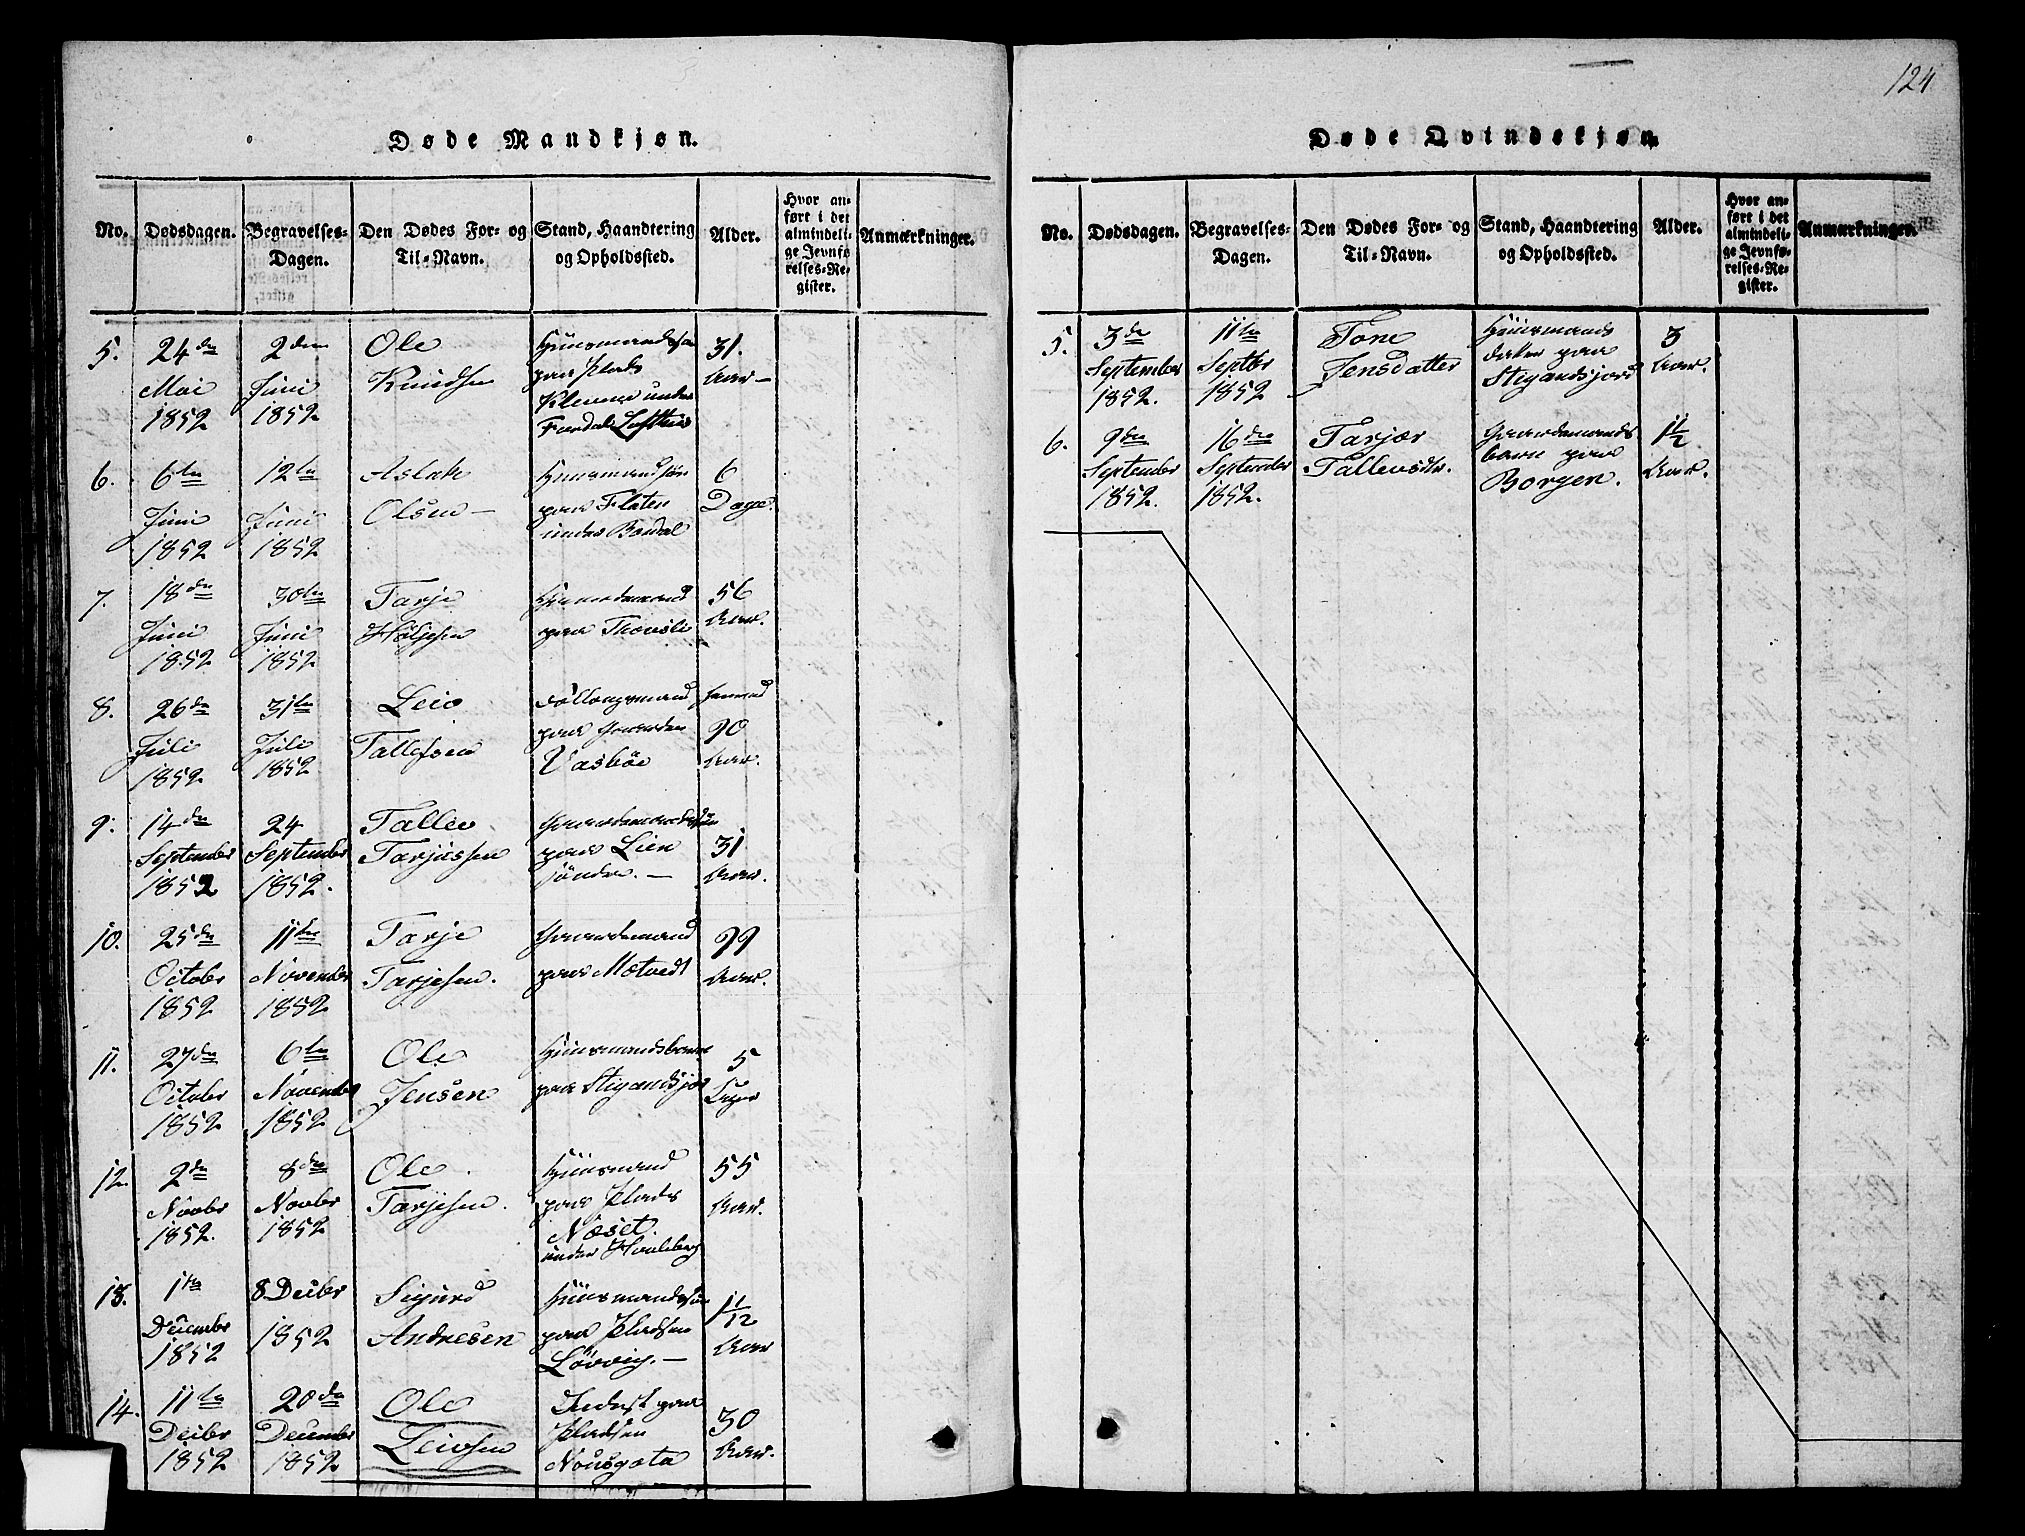 124
Døde Mandkjøn.
No. Dødsdagen. Begravelses-Dagen. Den Dødes For- og Til-Navn. Stand, Haandtering og Opholdssted. Alder. Hvor anført i det almindelige Jevnførelses-Register. Anmærkninger.
5. 24de 2den Ole Huusmandssøn 31.
Mai Juni Knudsen paa Plads Aar
1852 1852 under
6. 6te 12te Aslak Huusmandssøn 6
Juni Juni Olsen paa Flaten Dage.
1852 1852 under Bordal
7. 18de 30te Tarje Gaardemand 56
Juni Juni Høljesen paa Aar.
1852 1852
8. 26de 31te Leiv
Juli Juli Tallefsen paa Gaarden 90
1852 1852 Vasbøe Aar.
9. 14de 24 Tallev Gaardemandssøn
September September Tarjussen paa Lien 31
1852 1852. søndre. Aar.
10. 25de 11te Tarje Gaardemand 99
October November Tarjesen. paa Møtvedt Aar.
1852 1852
11. 27de 6te Ole Huusmandsbarn 5
October November Jensen paa Stigandsjor Uger
1852 1852
12. 2de 8de Ole Huusmand 55
Novbr Novbr Tarjesen. paa Plads Aar.
1852. 1852 Næset
under
13. 1te 8 Decbr Sigurd Huusmandssøn 1 1/12
Decembr 1852 Andresen paa Pladsen Aar
1852 Løvvig.
14. 11te 20de Ole Inderst paa
Decbr Decembr Leivsen Pladsen 30
1852 1852 Aar.
Døde Qvindekjøn.
No. Dødsdagen. Begravelses-Dagen. Den Dødes For- og Til-Navn. Stand, Haandtering og Opholdssted. Alder. Hvor anført i det almindelige Jevnførelses-Register. Anmærkninger.
5. 3de 11te Tone Huusmands 3
September Septbr Jensdatter datter paa Aar.
1852. 1852 Stigandsjord
6. 9de 16de Tarjær Gaardemands 1 1/2
September September Tallevsdtr. barn paa Aar.
1852. 1852. Borgen.